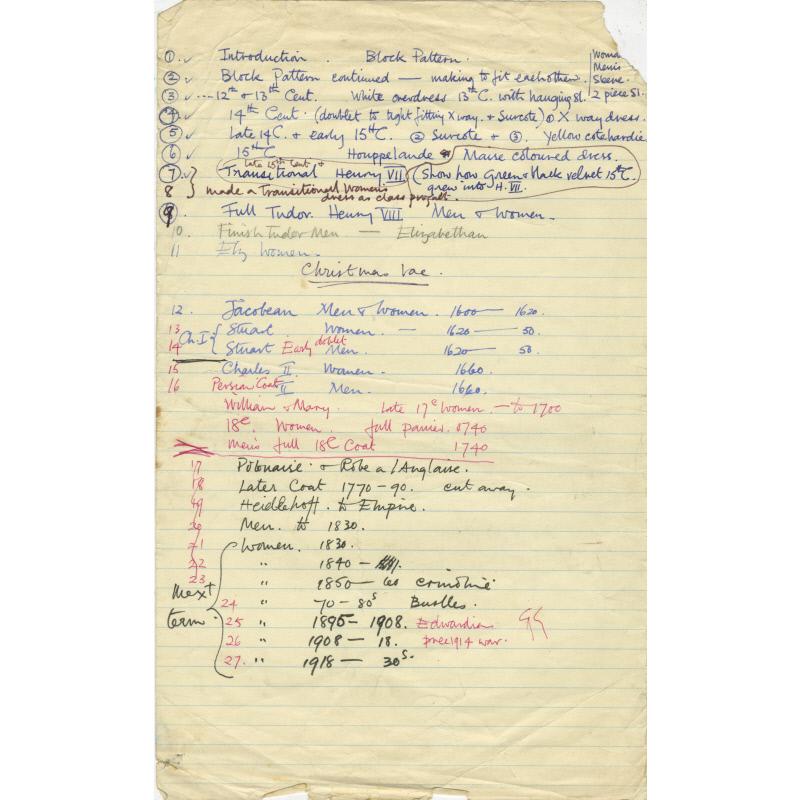 ① ✓ Introduction . Block Pattern . Woma
Men's
② ✓ Block Pattern continued — making to fit each other. Sleeve.
③ ✓ ... 12th & 13th Cent. White overdress 13th C. with hanging sl. 2 piece Sl.
④ ✓ 14th Cent. (doublet to tight fitting X way. + Surcote) ① X way dress.
⑤ ✓ Late 14C. + early 15th C. ② Surcote + ③. Yellow cotehardie
⑥ ✓ 15th C Houppelande Mauve coloured dress.
late 15th Cent +
⑦ ✓ Transitional Henry VII (Show how Green & black velvet 15th C.
grew into H. VII.
8 made a Transitional Women's
dress as class project.
⑨ Full Tudor. Henry VIII Men & Women.
10. Finish Tudor Men — Elizabethan
11 Eliz Women.
Christmas Vac.
12. Jacobean Men & Women. 1600 — 1620.
13 Stuart Women. — 1620 — 50.
Ch. I
14 Stuart Early doblet Men. 1620 — 50.
15 Charles II Women. 1660.
16 Persian Coat II Men. 1660.
William & Mary. Late 17c Women. — to 1700
18c. Women. full panier. 1740
Men's full 18c Coat 1740
17 Polonaise . & Robe a l'Anglaise.
18 Later Coat 1770 - 90. cut away.
19 Heidlehoff. to Empire.
20 Men. to 1830.
21 Women. 1830.
22 " 1840 —
23 " 1850 — 60 crinoline
Next
term.
24 " 70 — 80s Bustles.
25 " 1895 — 1908. Edwardian
26 " 1908 — 18. pree 1914 war.
27. " 1918 — 30s.